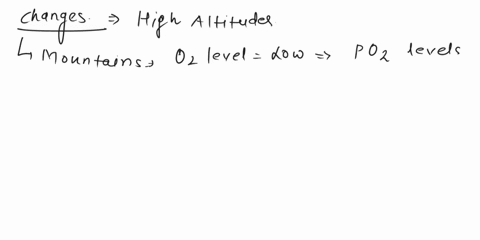 Changes. ⇒ High Altitudes
↳ Mountains, O2 level = Low ⇒ PO2 levels